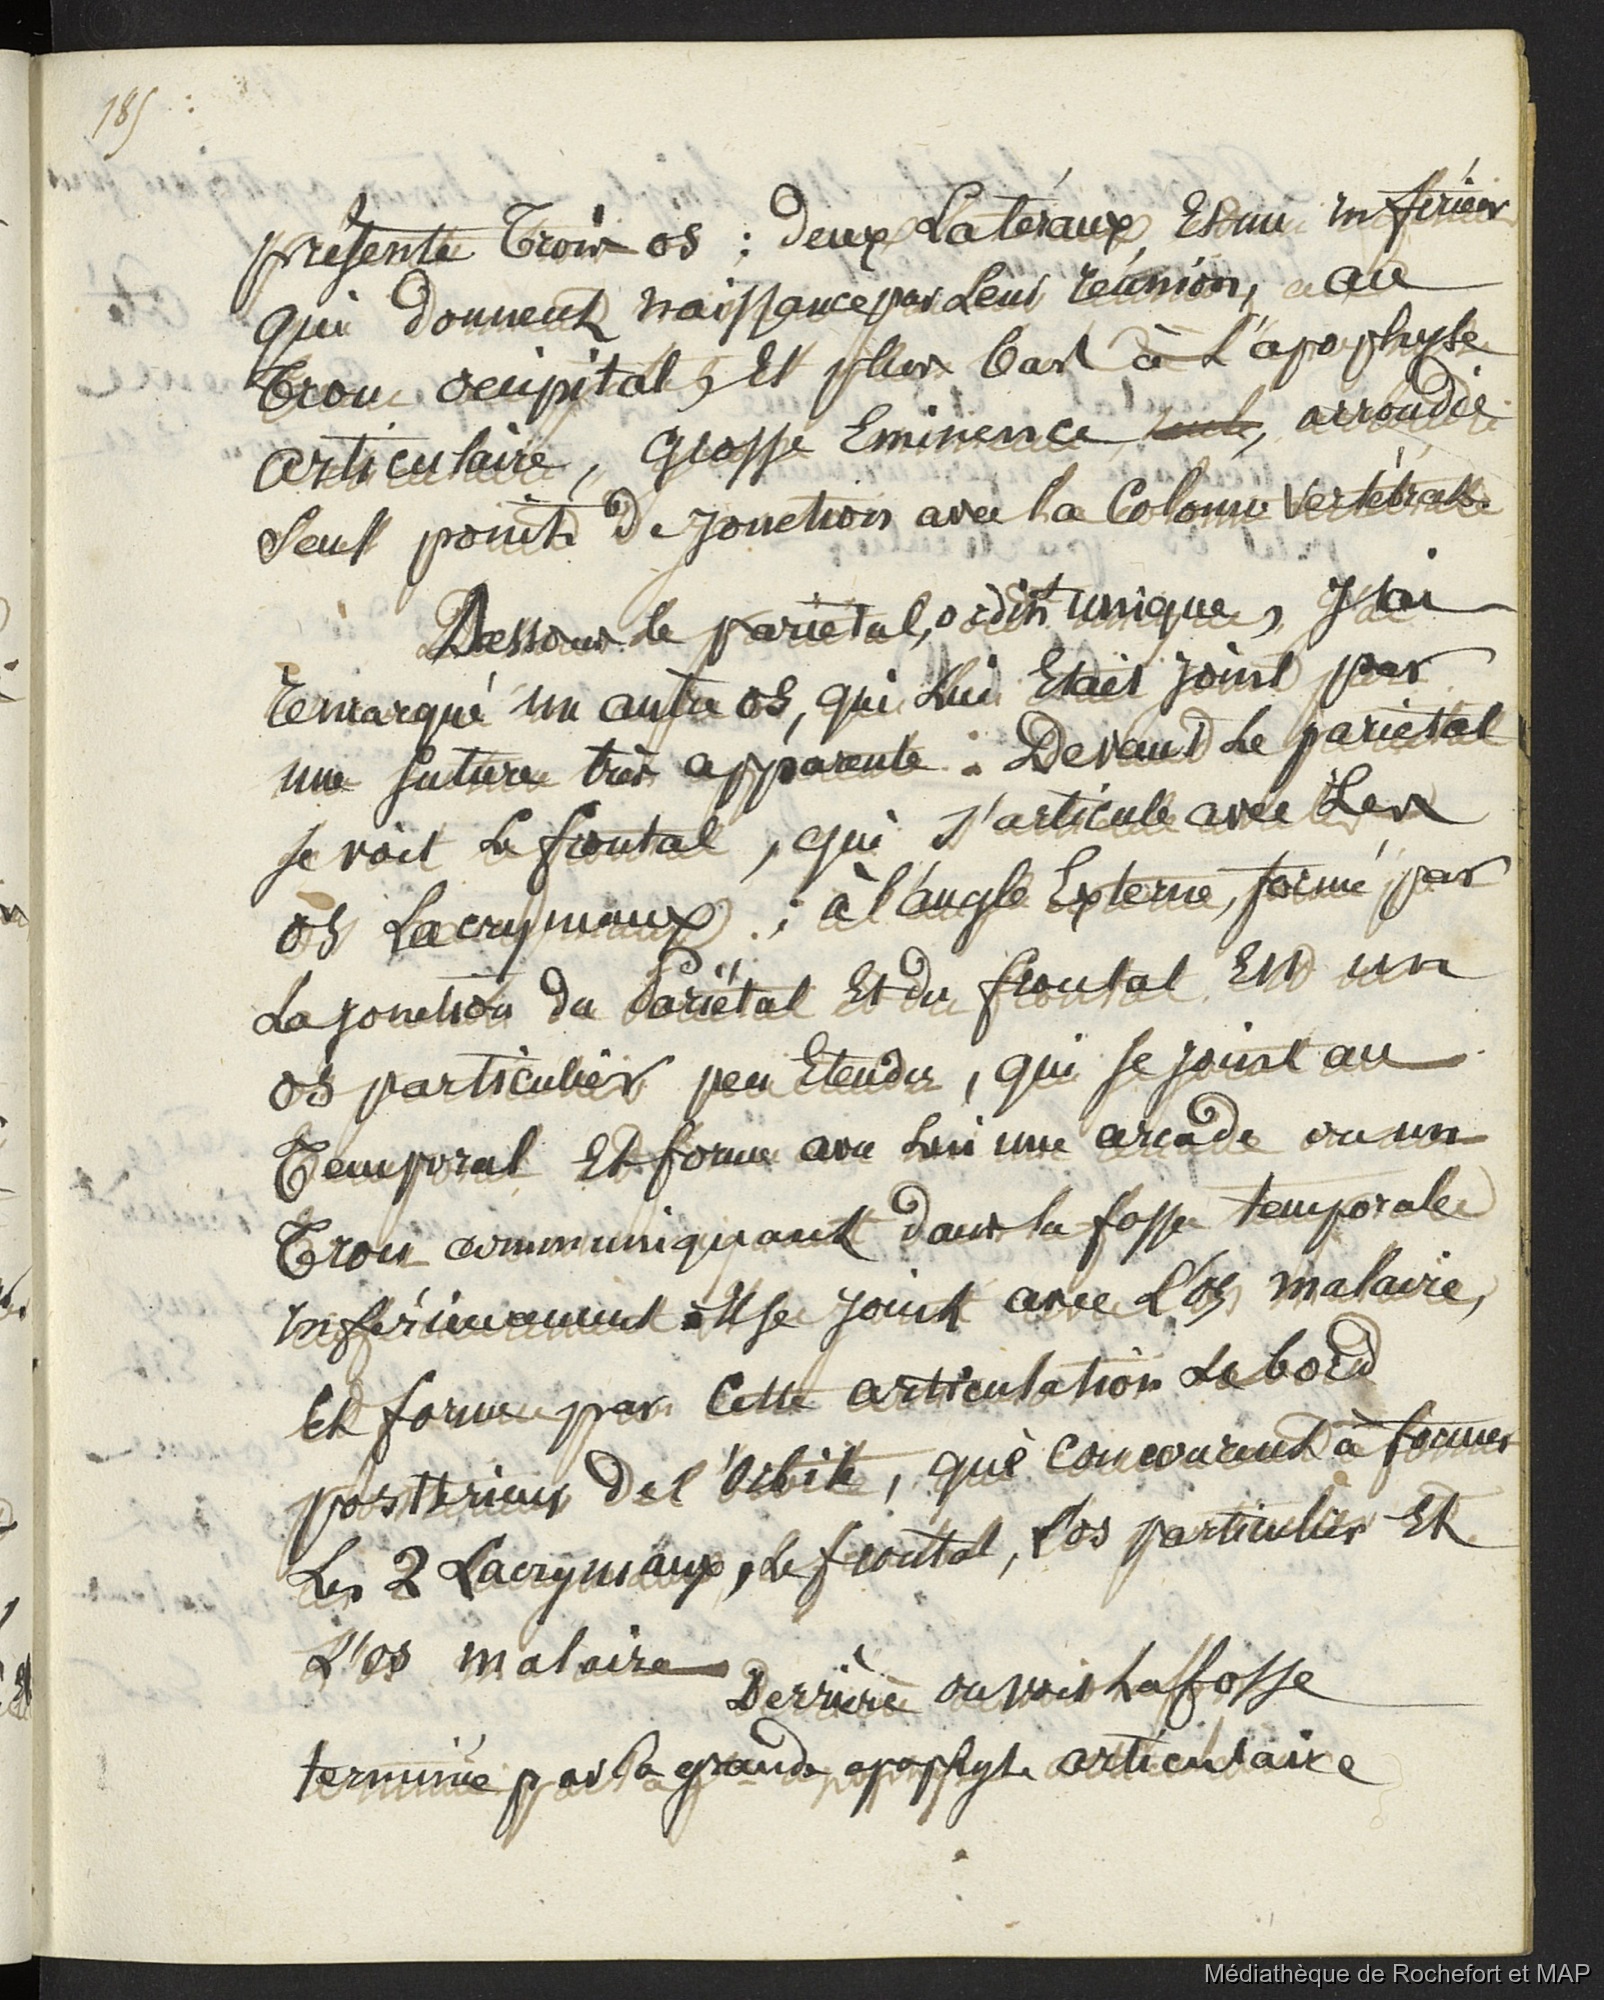 185 :
présente Trois os : deux Latéraux, Et un inférieur
qui donnent naissance par Leur réunion, au
Trou occipital, Et plus bas à L'apophyse
articulaire, grosse Eminence, arrondie
seul point de jonction avec la Colonne Vertébrale.
Dessous le pariétal, ordint unique, J'ai
remarqué un autre os, qui Lui Etait joint par
une suture très apparente : Devant Le pariétal
se voit Le frontal, qui s'articule avec Les
os Lacrymaux ; à l'angle Externe, formé par
La jonction du Pariétal Et du frontal Est un
os particulier peu Etendu, qui se joint au
Temporal Et forme avec Lui une arcade ou un
Trou communiquant dans la fosse temporale
inférieurement. Il se joint avec L'os malaire,
Et forme par Cette articulation Le bord
postérieur de l'Orbite, que concourent à former
Les 2 Lacrymaux, Le frontal, l'os particulier Et
L'os malaire
Derrière on voit La fosse
terminée par la grande apophyse articulaire
Médiathèque de Rochefort et MAP